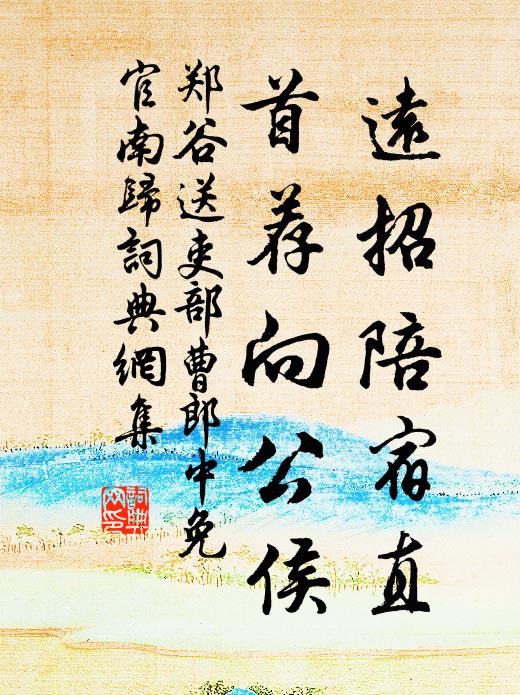 遠招陪宿直
首荐向公侯
郑谷送吏部曹郎中免
官南歸詞典網集
詞典網印